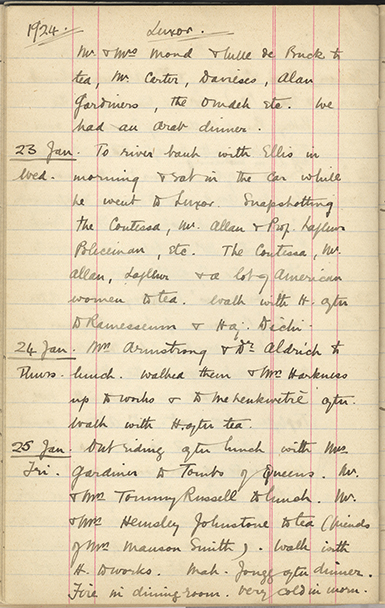 1924. Luxor.
Mr. & Mrs Mond & Mlle de Buck to
tea, Mr. Carter, Davieses, Alan
Gardiners, the Omdeh etc. We
had an Arab dinner.
23 Jan. To river bank with Ellis in
Wed. morning & sat in the car while
he went to Luxor. Snapshotting
the Contessa, Mr. Allan & Prof. Lafleur
Policeman, etc. The Contessa, Mr.
Allan, Lafleur & a lot of American
women to tea. Walk with H. after
to Ramesseum & Haj.
24 Jan. Mrs Armstrong & Dr Aldrich to
Thurs. lunch. Walked them & Mrs Harkness
up to works & to Mehenkwetre after.
Walk with H. after tea.
25 Jan. Out riding after lunch with Mrs
Fri. Gardiner to Tombs of Queens. Mr.
& Mrs Tommy Russell to lunch. Mr.
& Mrs Hemsley Johnstone to tea (friends
of Mrs Manson Smith). Walk with
H. to works. Mah-Jongg after dinner.
Fire in dining room. Very cold in morn.